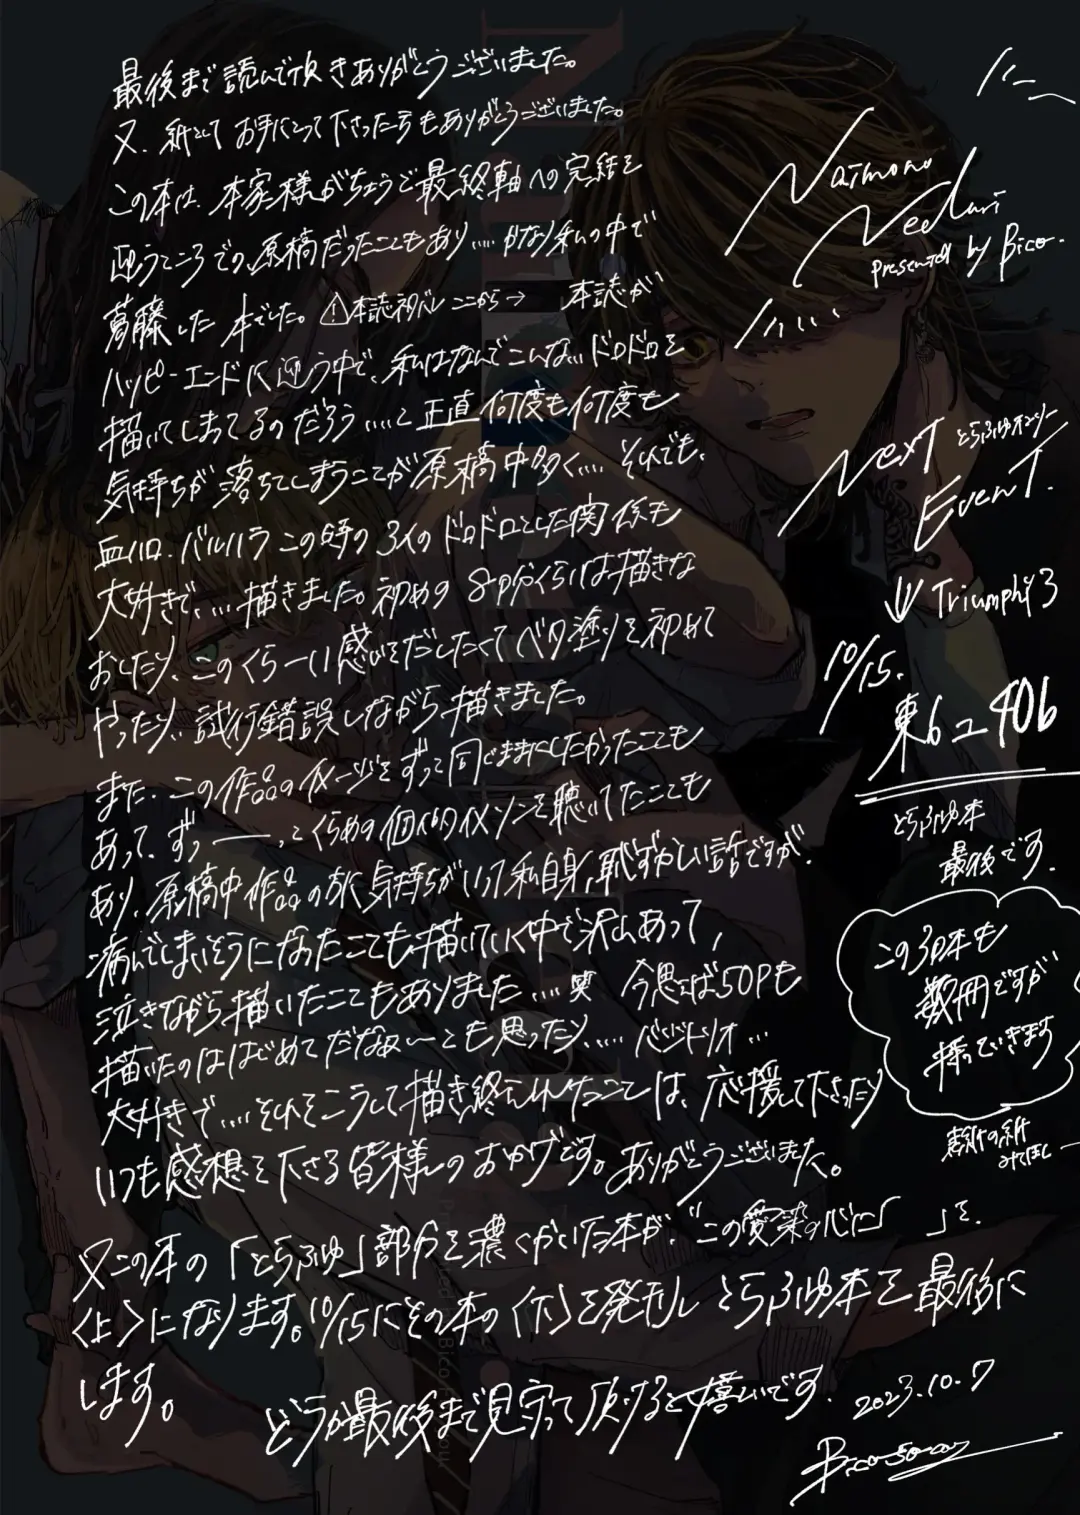 最後まで読んで頂きありがとうございました。
又、紙として お手にとって下さった方もありがとうございました。
この本は、本家様がちょうど最終軸への完結を
迎うところでの、原稿だったこともあり.... かなり私の中で
葛藤した本でした。⚠本誌ネタバレ ここから→ 本誌が
ハッピーエンドに迎う中で、私はなんでこんな... ドロドロを
描いてしまってるのだろう....と正直 何度も何度も
気持ちが落ちてしまうことが原稿中多く.... それでも、
血ハロ、バルハラ この時の 3人のドロドロとした関係も
大好きで、... 描きました。初めの 8P分くらいは描きな
おしたり、このくらーい感じをだしたくてベタ塗りを初めて
やったり、試行錯誤しながら描きました。
また、この作品のイメージをずっと同じままにしたかったことも
あって、ずっ──っとくらめの個人的イメソンを聴いてたことも
あり、原稿中作品の方に気持ちがいって私自身、恥ずかしい話ですが、
病んでしまいそうになったことも描いていく中で沢山あって、
泣きながら描いたこともありました....笑 今思えば50Pも
描いたのははじめてだなぁ〜とも思ったり、.... バジトリオ...
大好きで.... それをこうして描き終えれたことは、応援して下さったり
いつも感想を下さる皆様のおかげです。ありがとうございました。
又この本の「とらふゆ」部分を濃くかいた本が、"この愛染の心に「 」を、
〈上〉になります。10/15にその本の〈下〉を発行し とらふゆ本を最後に
します。
どうか最後まで見守って頂けると嬉しいです. 2023.10.7
Naimono
Nedari
presented by Bico.
Next とらふゆオンリー
Event.
↓ Triumph!! 3
10/15.
東6ユ40b
とらふゆ本
最後です.
この3日本も
数冊ですが
持っていきます
表紙の紙
みてほしー
Presented
Bico